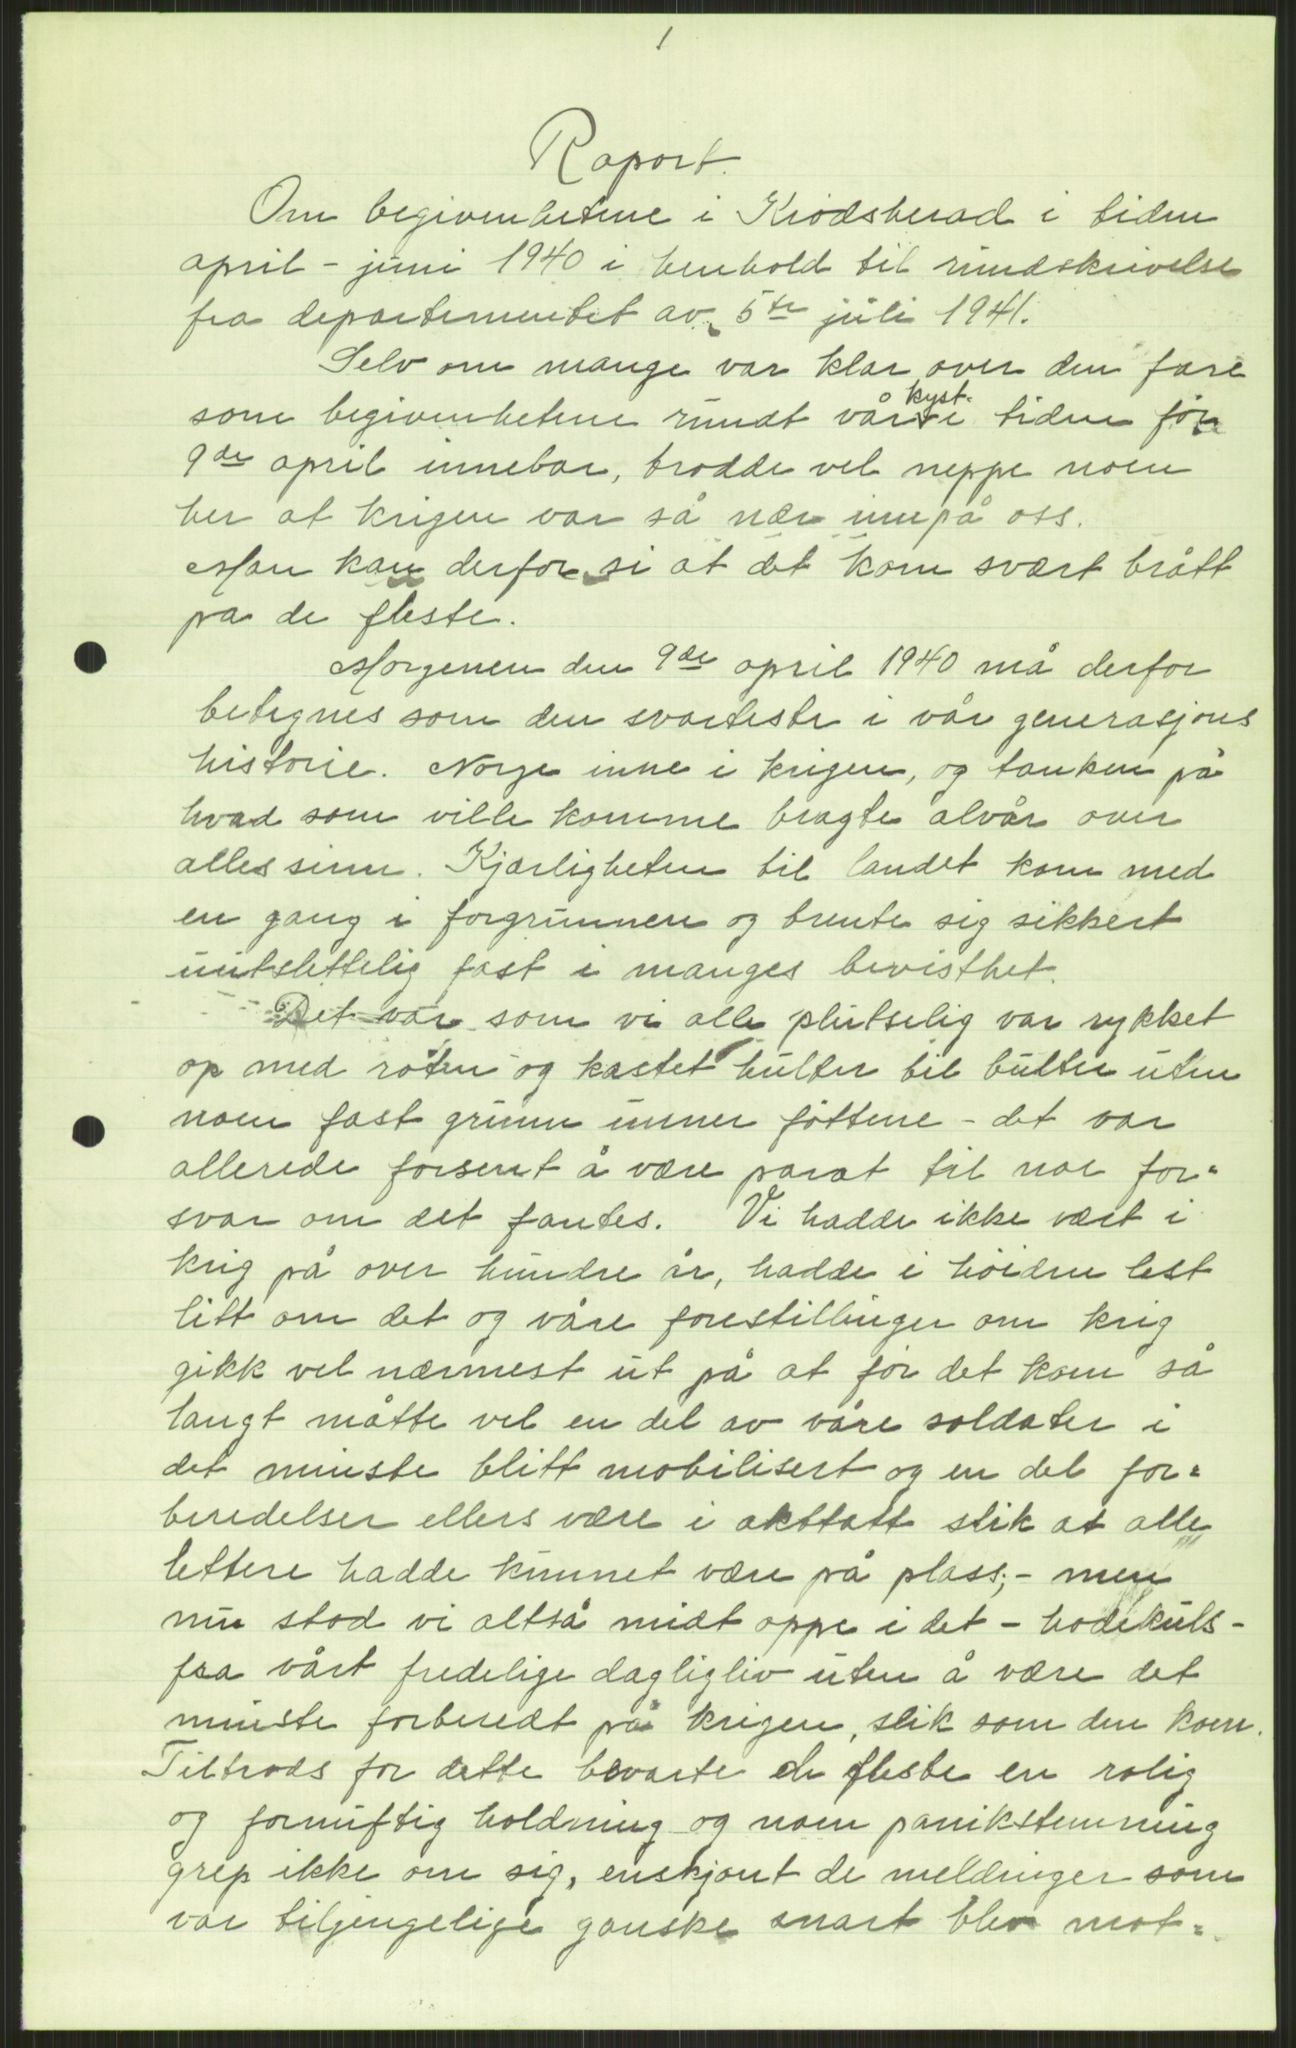 1
Raport.
Om begivenhetene i Krødsherad i tiden
april - juni 1940 i henhold til rundskrivelse
fra departementet av 5te juli 1941.
Selv om mange var klar over den fare
som begivenhetene rundt vår kyst i tiden før
9de april innebar, trodde vel neppe noen
her at krigen var så nær innpå oss.
Man kan derfor si at det kom svært brått
på de fleste.
Morgenen den 9de april 1940 må derfor
betegnes som den svarteste i vår generasjons
historie. Norge inne i krigen, og tanken på
hvad som ville komme bragte alvår over
alles sinn. Kjærligheten til landet kom med
en gang i forgrunnen og brente sig sikkert
uutslettelig fast i manges bevisthet.
Det var som vi alle plutselig var rykket
op med roten og kastet hulter til bulter uten
noen fast grunn unner føttene - det var
allerede forsent å være parat til noe for=
svar om det fantes. Vi hadde ikke vært i
krig på over hundre år, hadde i høiden lest
litt om det og våre forestillinger om krig
gikk vel nærmest ut på at før det kom så
langt måtte vel en del av våre soldater i
det minste blitt mobilisert og en del for=
beredelser ellers være i akttatt slik at alle
lettere hadde kunnet være på plass; - men
nu stod vi altså midt oppe i det - hodekuls -
fra vårt fredelige dagligliv uten å være det
minste forberedt på krigen, slik som den kom.
Tiltrods for dette bevarte de fleste en rolig
og fornuftig holdning og noen panikstemning
grep ikke om sig, enskjønt de meldinger som
var tiljengelige ganske snart blev mot=